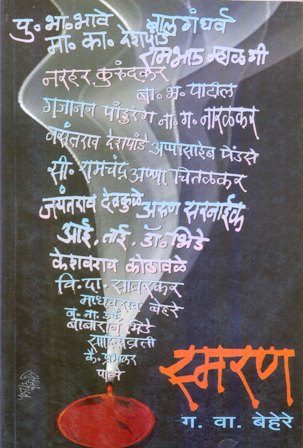 पु. भा. भावे बालगंधर्व
मा. का. देशपांडे
रामभाऊ म्हाळगी
नरहर कुरुंदकर
बा. भ. पाटील
गजानन पांडुरंग ना. ग. नारळकर
वसंतराव देशपांडे अप्पासाहेब पेंडसे
सी. रामचंद्र अण्णा चितळकर
जयंतराव देवकुळे अरुण सरनाईक
आई, ताई, डॉ. भिडे
केशवराव कोठावळे
वि. दा. सावरकर
माधवराव बेहेरे
बाबाराव भिडे
स्मरण
ग. वा. बेहेरे